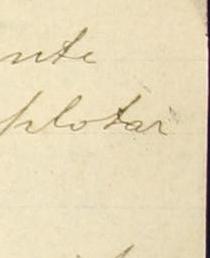 nte
plotar